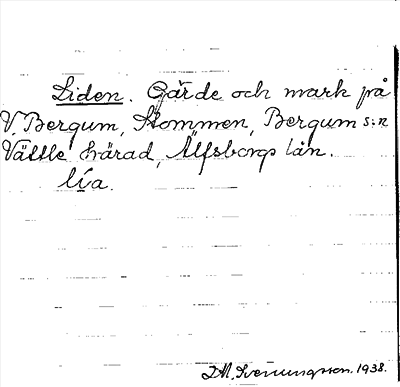 Liden. Gärde och mark på
V. Bergum, Stommen, Bergum s:n
Vättle härad, Älfsborgs län.
lia.
D.M. Svenungsson. 1938.